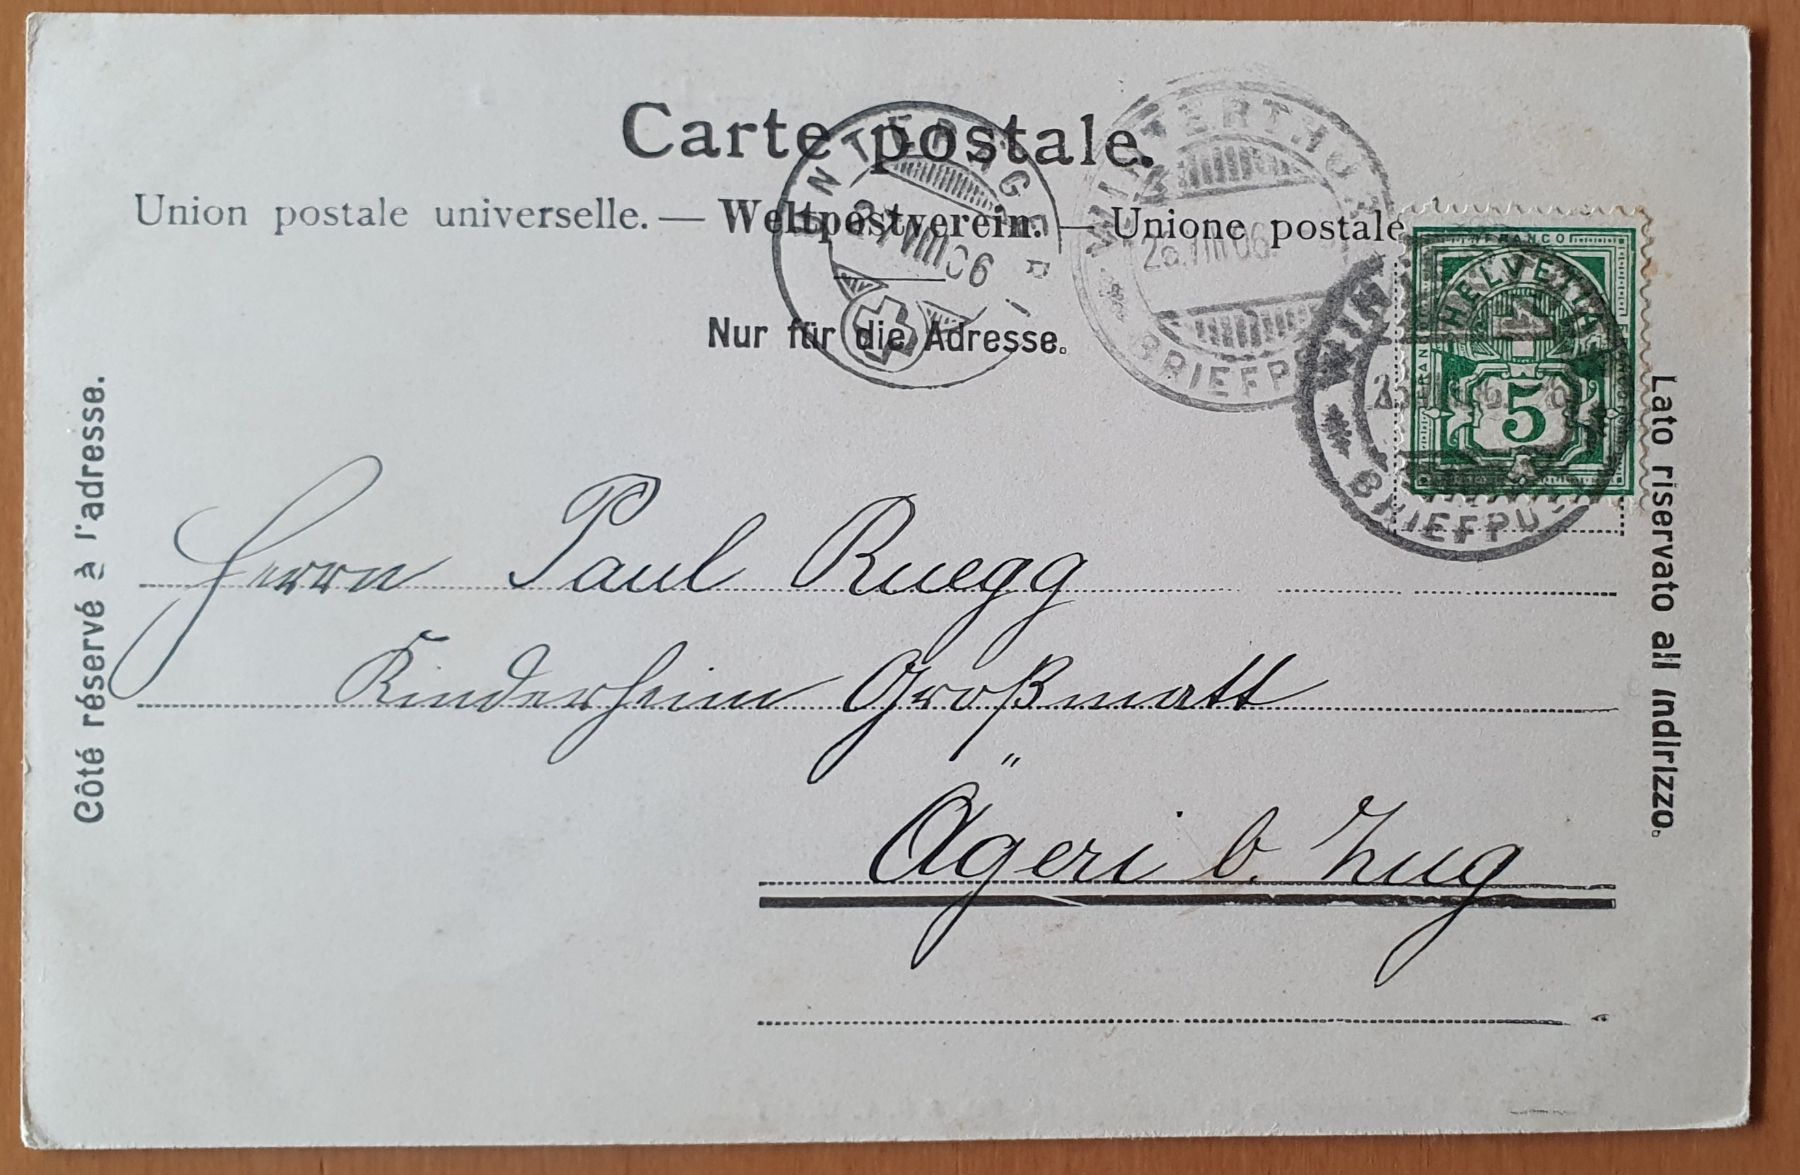 Carte postale.
Union postale universelle. — Weltpostverein. — Unione postale
Nur für die Adresse.
UNTERÄGERI
27 VIII 06
WINTERTHUR
BRIEFP
FRANCO
HELVETIA
5
BRIEFP
Côté réservé à l'adresse.
Lato riservato all indirizzo.
Herrn Paul Ruegg
Kinderheim Großmatt
Ägeri b. Zug